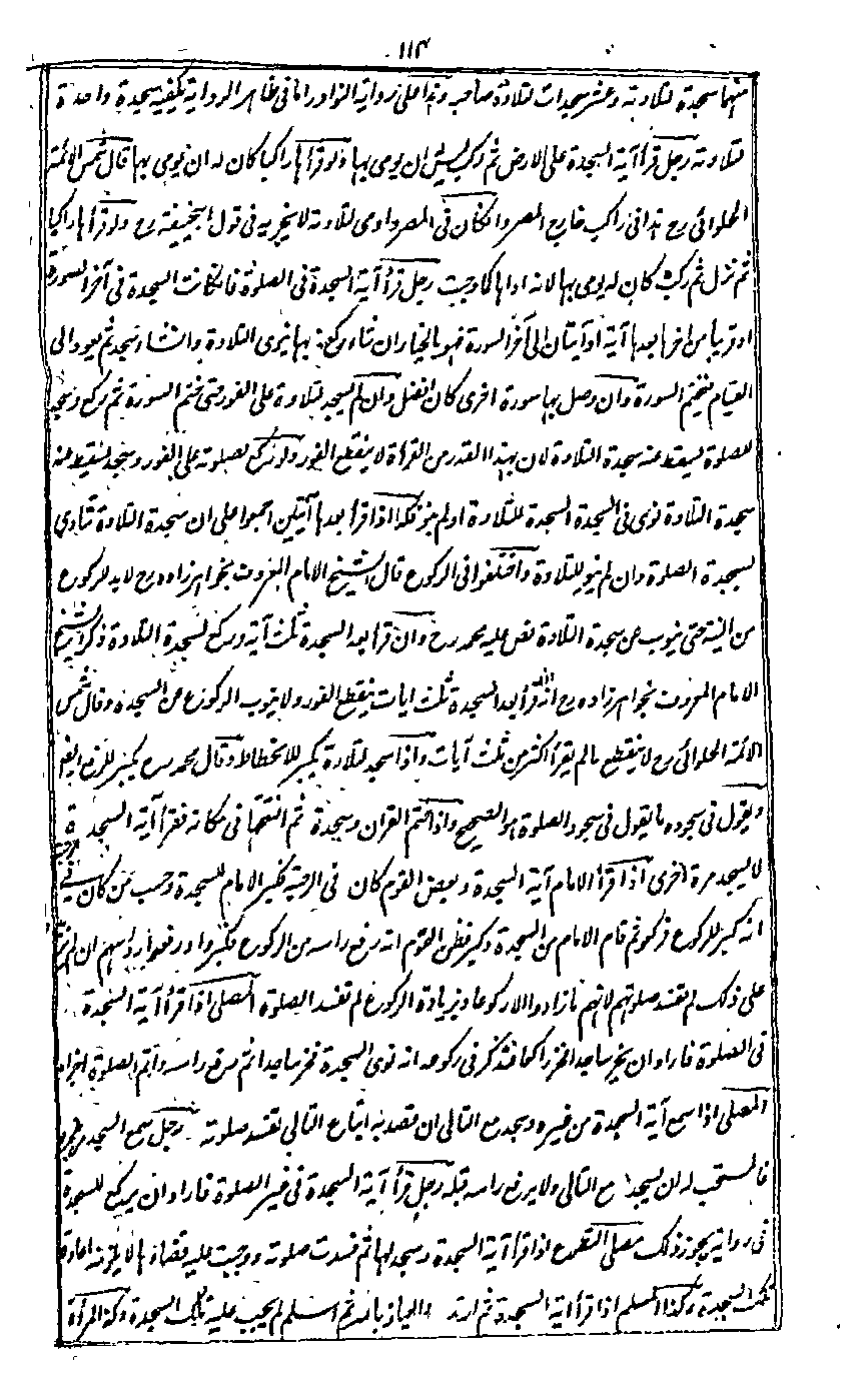 ١١٣
منهما سجدة لتلاوته وعشر سجدات لتلاوة صاحبه وهذا على رواية النوادر اما فى ظاهر الرواية تكفيه سجدة واحدة
لتلاوته رجل قرأ آية السجدة على الارض ثم ركب ليس له ان يومى بها ولو قرأها راكبا كان له ان يومى بها قال شمس الائمة
الحلوائى رح هذا فى راكب خارج المصر وان كان فى المصر واومى لتلاوته لا يجزيه فى قول ابيحنيفة رح ولو قرأها راكبا
ثم نزل ثم ركب كان له يومى بها لانه اداها كما وجبت رجل قرأ آية السجدة فى الصلوة فان كانت السجدة فى آخر السورة
او قريبا من اخرها بعدها آية او آيتان الى آخر السورة فهو بالخيار ان شاء ركع بها ينوى التلاوة وان شاء سجد ثم يعود الى
القيام فيختم السورة وان وصل بها سورة اخرى كان افضل وان لم يسجد لتلاوة على الفور حتى ختم السورة ثم ركع وسجد
للصلوة يسقط عنه سجدة التلاوة لان بهذا القدر من القرأة لا ينقطع الفور ولو ركع لصلوته على الفور وسجد يسقط عنه
سجدة التلاوة نوى فى السجدة السجدة للتلاوة او لم ينو فكذا اذا قرأ بعدها آيتين اجمعوا على ان سجدة التلاوة تتادى
بسجدة الصلوة وان لم ينو للتلاوة واختلفوا فى الركوع قال الشيخ الامام المعروف بخواهرزاده رح لابد للركوع
من النية حتى ينوب عن سجدة التلاوة نص عليه محمد رح وان قرأ بعد السجدة ثلث آية وركع لسجدة التلاوة ذكر الشيخ
الامام المعروف بخواهرزاده رح انه اذا قرأ بعد السجدة ثلث ايات ينقطع الفور ولا ينوب الركوع عن السجدة وقال شمس
الائمة الحلوائى رح لا ينقطع ما لم يقرأ اكثر من ثلث آيات واذا سجد لتلاوة يكبر للانحطاط وقال محمد رح يكبر للرفع ايضا
ويقول فى سجوده ما يقول فى سجود الصلوة هو الصحيح واذا ختم القران وسجدة ثم افتتحها فى مكانه فقرأ آية السجدة
لا يسجد مرة اخرى اذا قرأ الامام آية السجدة وبعض القوم كان فى الرحبة فكبر الامام للسجدة وحسب من كان فى الرحبة
انه كبر للركوع فركعو ثم قام الامام من السجدة وكبر فظن القوم انه رفع راسه من الركوع فكبروا ورفعوا رؤسهم ان لم
على ذلك لم تفسد صلوتهم لانهم ما زادوا الا ركوعا وبزيادة الركوع لم تفسد الصلوة المصلى اذا قرأ آية السجدة
فى الصلوة فاراد ان يخر ساجدا فخر راكعا فتذكر فى ركوعه انه نوى السجدة فخر ساجدا ثم رفع راسه واتم الصلوة اجزاه
المصلى اذا سمع آية السجدة من غيره وسجد مع التالى ان قصد به اتباع التالى تفسد صلوته رجل سمع السجدة من
فالمستحب له ان يسجد مع التالى ولا يرفع راسه قبله رجل قرأ آية السجدة فى غير الصلوة فاراد ان يركع للسجدة
فى رواية يجوز ذلك مصلى التطوع اذا قرأ آية السجدة وسجد لها ثم فسدت صلوته ووجبت عليه قضاؤها لا يلزمه اعادة
تلك السجدة وكذا المسلم اذا قرأ اية السجدة ثم ارتد والعياذ بالله ثم اسلم لم يجب عليه تلك السجدة وكذا المرأة